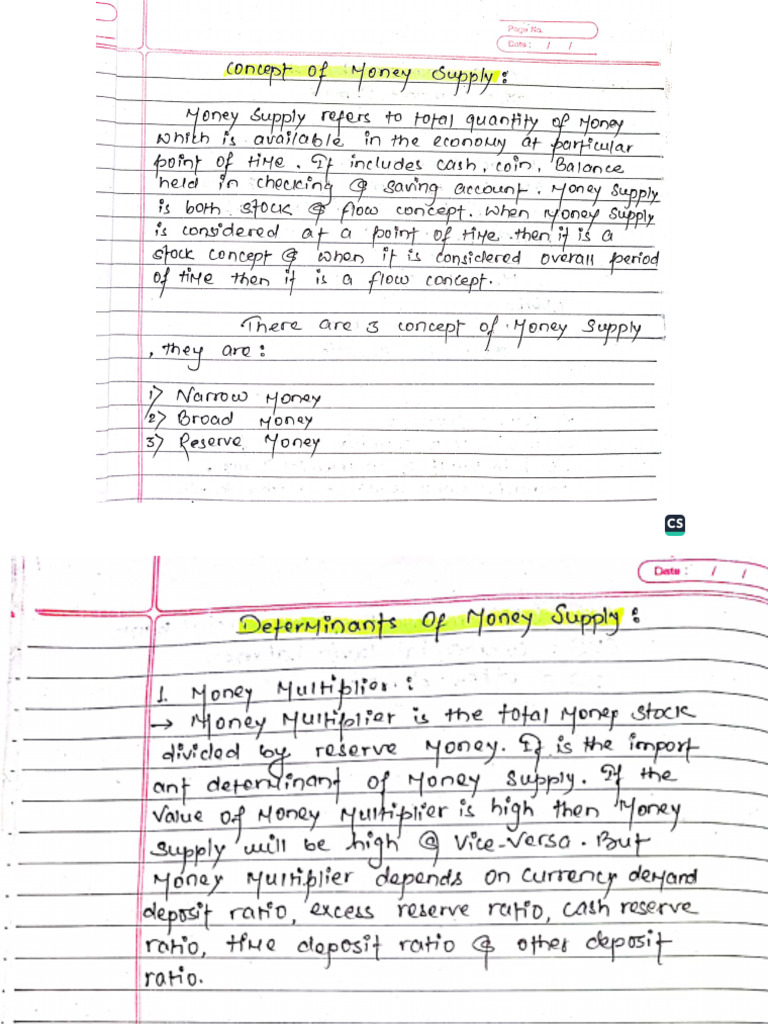 Page No.
Date : / /
Concept of Money Supply :
Money Supply refers to total quantity of Money
which is available in the economy at particular
point of time. It includes cash, coin, Balance
held in checking & saving account. Money Supply
is both stock & flow concept. when Money Supply
is considered at a point of time then it is a
stock concept & when it is considered overall period
of time then it is a flow concept.
There are 3 concept of Money Supply
, they are :
1) Narrow Money
2) Broad Money
3) Reserve Money
CS
Date : / /
Determinants Of Money Supply :
1. Money Multiplier :
→ Money Multiplier is the total Money stock
divided by reserve Money. It is the import
ant determinant of Money Supply. If the
value of Money Multiplier is high then Money
Supply will be high & Vice-Versa. But
Money Multiplier depends on currency demand
deposit ratio, excess reserve ratio, cash reserve
ratio, time deposit ratio & other deposit
ratio.